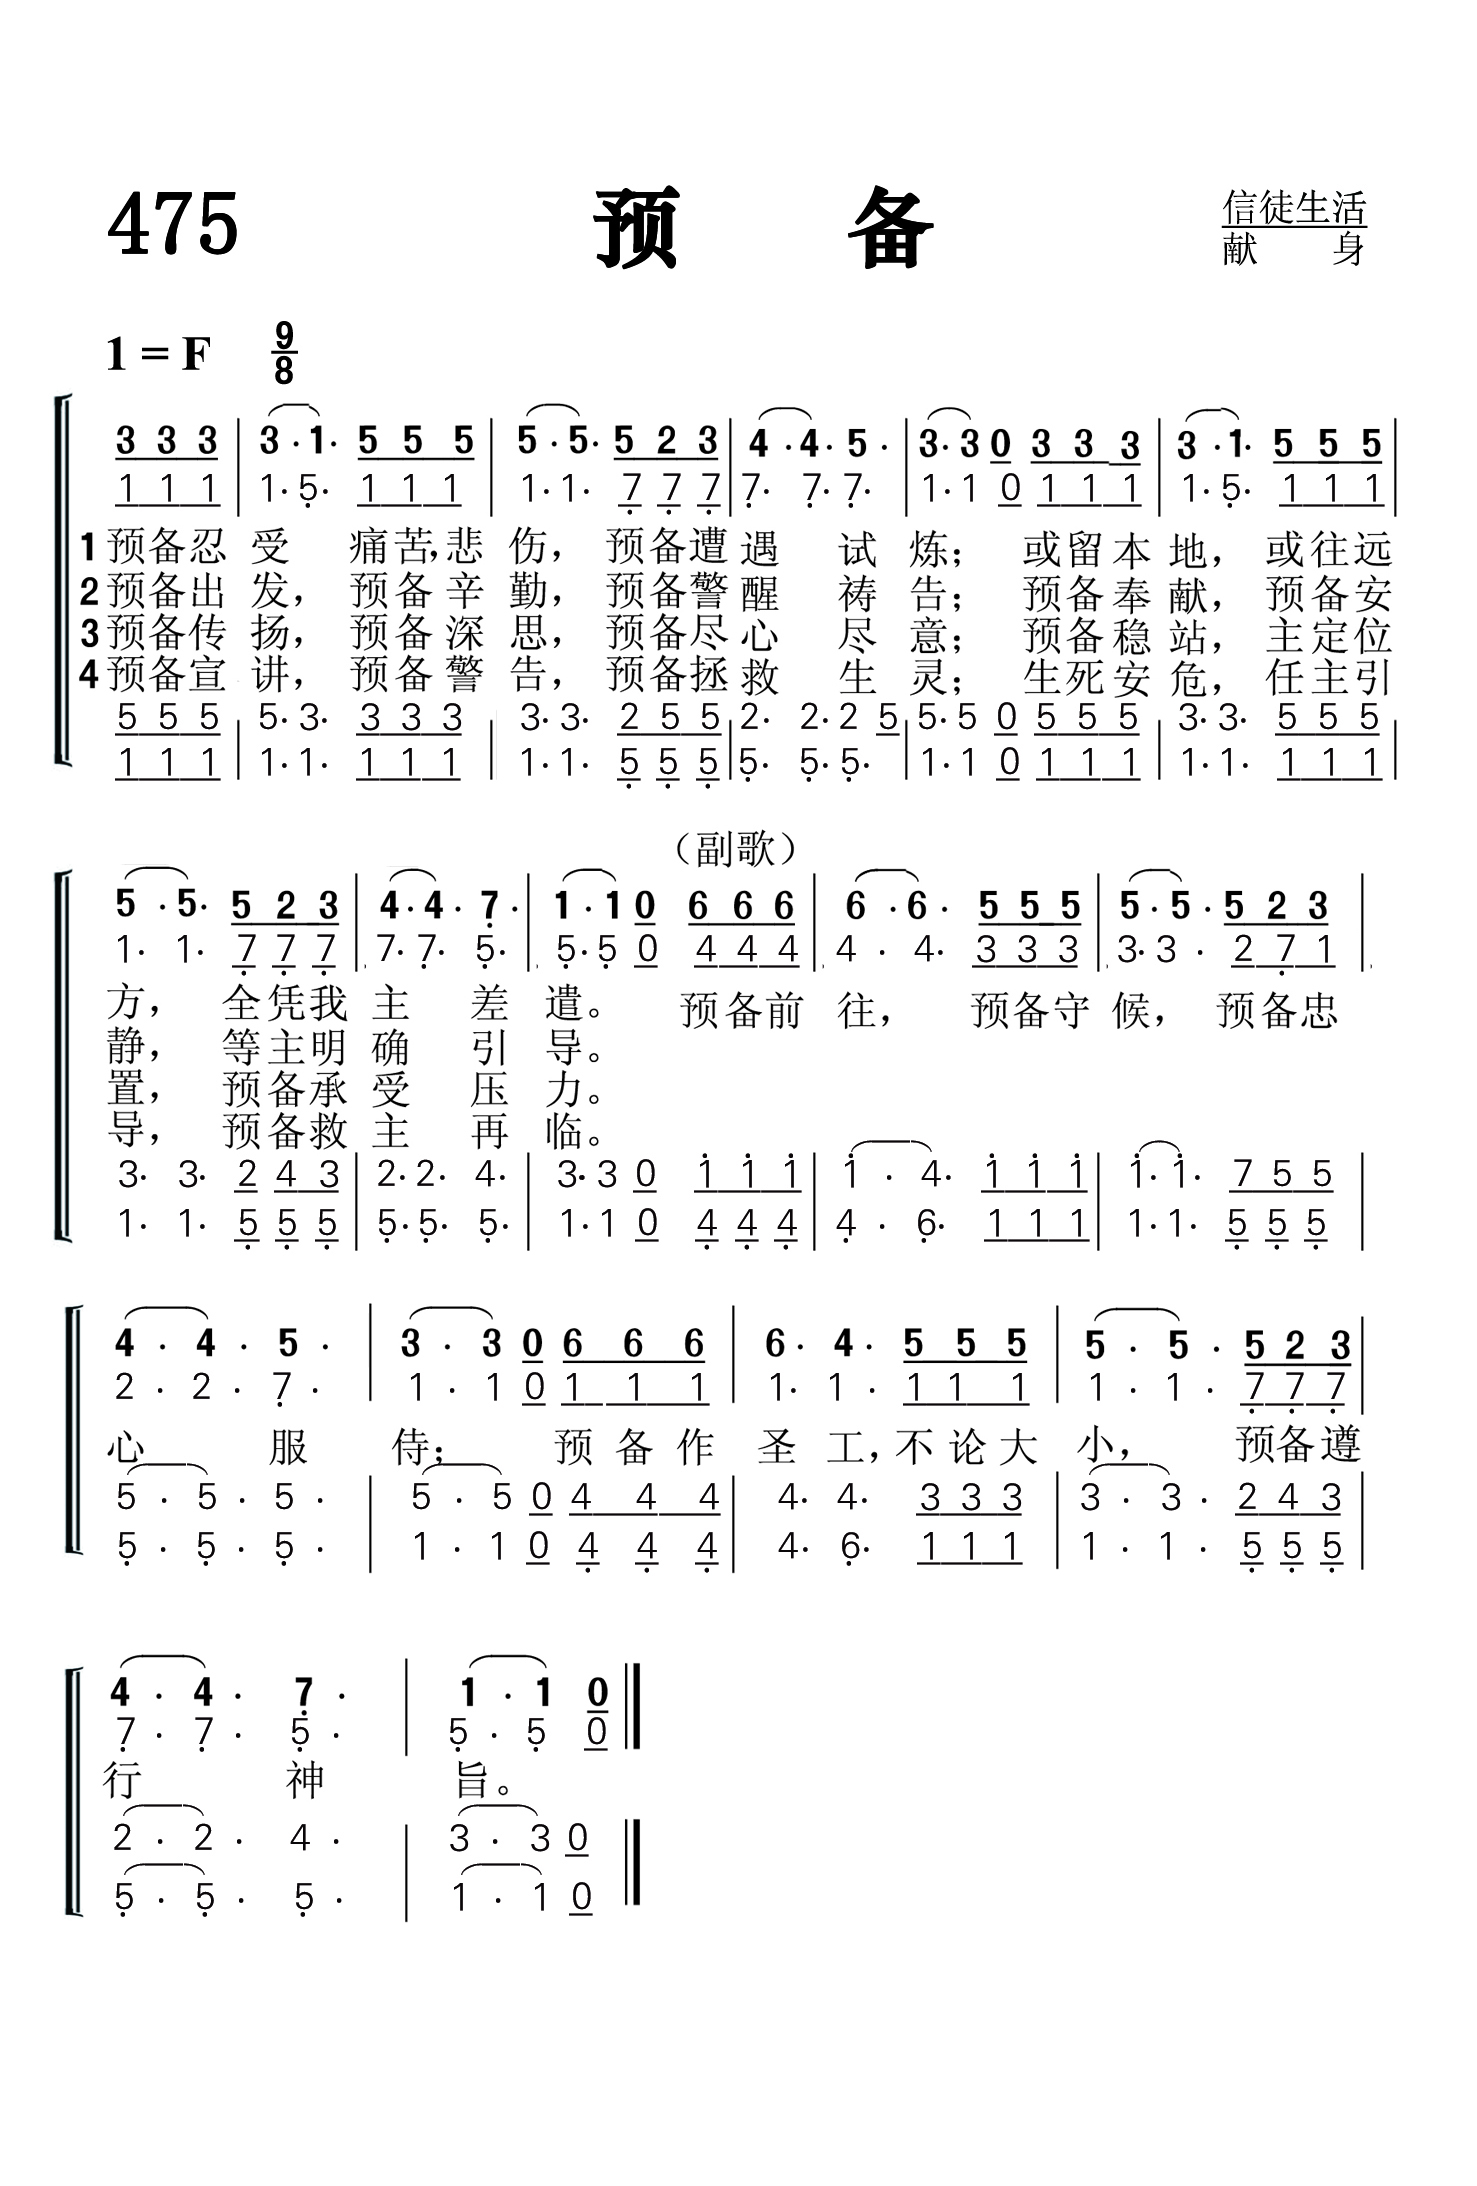 475 预 备 信徒生活
献 身
1 = F 9/8
3 3 3 | 3 · 1 · 5 5 5 | 5 · 5 · 5 2 3 | 4 · 4 · 5 · | 3 · 3 0 3 3 3 | 3 · 1 · 5 5 5 |
1 1 1 | 1 · 5 · 1 1 1 | 1 · 1 · 7 7 7 | 7 · 7 · 7 · | 1 · 1 0 1 1 1 | 1 · 5 · 1 1 1 |
1 预备忍 受 痛苦,悲 伤， 预备遭 遇 试 炼； 或留本 地， 或往远
2 预备出 发， 预备辛 勤， 预备警 醒 祷 告； 预备奉 献， 预备安
3 预备传 扬， 预备深 思， 预备尽 心 尽 意； 预备稳 站， 主定位
4 预备宣 讲， 预备警 告， 预备拯 救 生 灵； 生死安 危， 任主引
5 5 5 | 5 · 3 · 3 3 3 | 3 · 3 · 2 5 5 | 2 · 2 · 2 5 | 5 · 5 0 5 5 5 | 3 · 3 · 5 5 5 |
1 1 1 | 1 · 1 · 1 1 1 | 1 · 1 · 5 5 5 | 5 · 5 · 5 · | 1 · 1 0 1 1 1 | 1 · 1 · 1 1 1 |
（副歌）
5 · 5 · 5 2 3 | 4 · 4 · 7 · | 1 · 1 0 6 6 6 | 6 · 6 · 5 5 5 | 5 · 5 · 5 2 3 |
1 · 1 · 7 7 7 | 7 · 7 · 5 · | 5 · 5 0 4 4 4 | 4 · 4 · 3 3 3 | 3 · 3 · 2 7 1 |
方， 全凭我 主 差 遣。 预备前 往， 预备守 候， 预备忠
静， 等主明 确 引 导。
置， 预备承 受 压 力。
导， 预备救 主 再 临。
3 · 3 · 2 4 3 | 2 · 2 · 4 · | 3 · 3 0 1 1 1 | 1 · 4 · 1 1 1 | 1 · 1 · 7 5 5 |
1 · 1 · 5 5 5 | 5 · 5 · 5 · | 1 · 1 0 4 4 4 | 4 · 6 · 1 1 1 | 1 · 1 · 5 5 5 |
4 · 4 · 5 · | 3 · 3 0 6 6 6 | 6 · 4 · 5 5 5 | 5 · 5 · 5 2 3 |
2 · 2 · 7 · | 1 · 1 0 1 1 1 | 1 · 1 · 1 1 1 | 1 · 1 · 7 7 7 |
心 服 侍； 预 备 作 圣 工，不 论 大 小， 预备遵
5 · 5 · 5 · | 5 · 5 0 4 4 4 | 4 · 4 · 3 3 3 | 3 · 3 · 2 4 3 |
5 · 5 · 5 · | 1 · 1 0 4 4 4 | 4 · 6 · 1 1 1 | 1 · 1 · 5 5 5 |
4 · 4 · 7 · | 1 · 1 0
7 · 7 · 5 · | 5 · 5 0
行 神 旨。
2 · 2 · 4 · | 3 · 3 0
5 · 5 · 5 · | 1 · 1 0